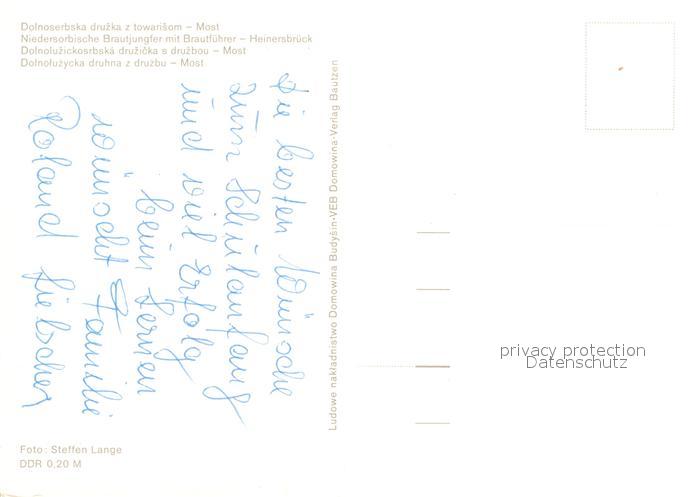 Dolnoserbska družka z towarišom – Most
Niedersorbische Brautjungfer mit Brautführer – Heinersbrück
Dolnolužickosrbská družička s družbou – Most
Dolnołużycka druhna z drużbu – Most
Die besten Wünsche
zum Schulanfang
und viel Erfolg
beim Lernen
wünscht Familie
Roland Liebscher
Ludowe nakładnistwo Domowina Budyšin·VEB Domowina-Verlag Bautzen
privacy protection
Datenschutz
Foto: Steffen Lange
DDR 0,20 M